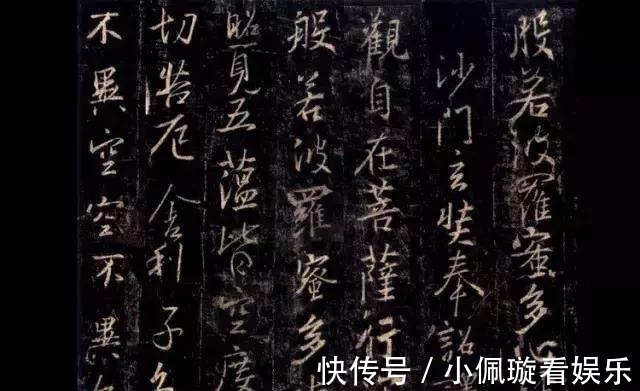 般若波羅蜜多心
沙門玄奘奉詔
觀自在菩薩行
般若波羅蜜多
照見五蘊皆空度
切苦厄舍利子
不異空空不異
快传号 / 小佩璇看娱乐